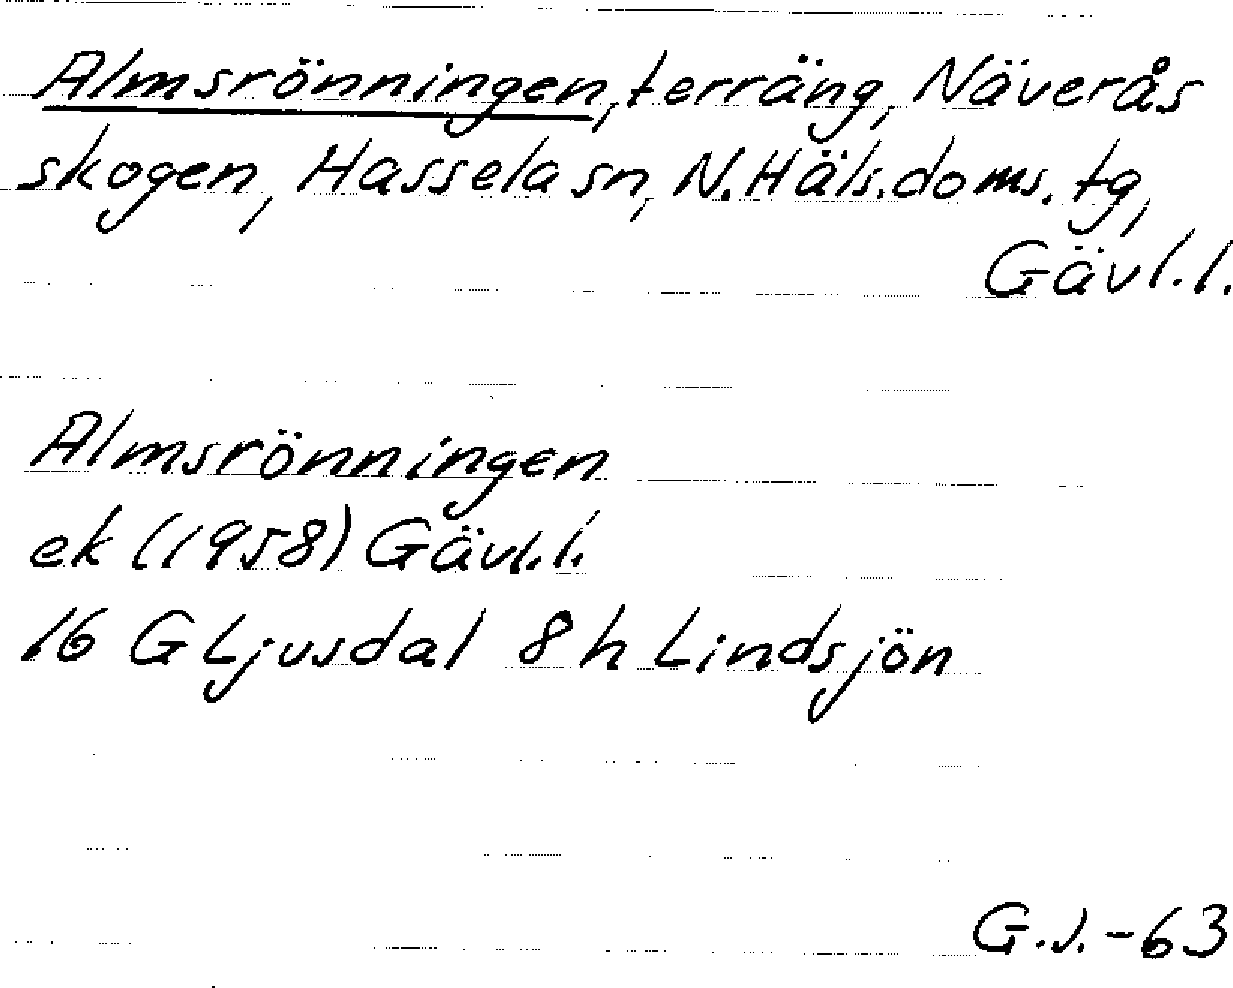 Almsrönningen, terräng, Näverås
skogen, Hassela sn, N. Häls. doms. tg,
Gävl. l.
Almsrönningen
ek (1958) Gävl. l.
16 G Ljusdal 8 h Lindsjön
G.J. -63